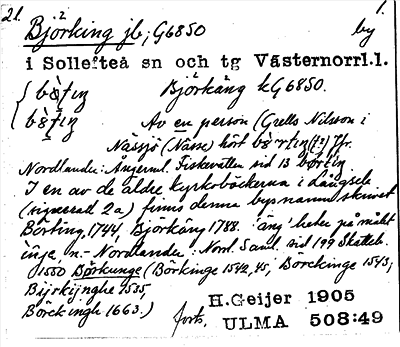 21. 2 1.
Björking jb; G6850 by
i Sollefteå sn och tg Västernorrl.l.
Björkäng kG6850.
Av en person (Grells Nilsson i
Nässjö (Nässe) hört
Nordlander: Ångerml. Fiskevatten sid 13
I en av de äldre kyrkoböckerna i Långsele
(signerad 2a) finns denna bynamn skrivet
Börting, 1744, Björkäng 1788. äng' heter på målet
inge, n.- Nordlander: Norrl. Saml. sid 199 Skatteb.
1550 Börkunge (Börkinge 1542, 45; Börckinge 1543;
Bijrkijnghe 1535,
Börckingh 1663.)
H.Geijer 1905
forts. ULMA 508:49